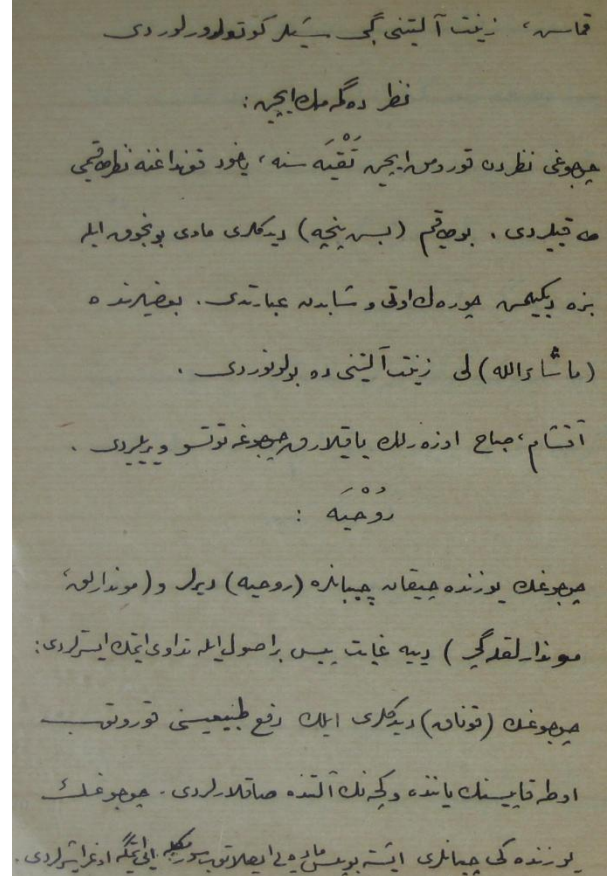 قماش، زينت آلتينى گبى شيلر كوتورولوردى
نظر دگمه‌مك ايچين :
چوجوغى نظردن قورومق ايچين تَقْيَه سنه، ياخود قونداغنه نظر طاقيمى
طاقيلردى . بو طاقيم (بش پنچه) ديدكلرى مادى بونجوق ايله
بزه ديكيلمش چوره‌ك اوتى و شابدن عبارتدى . بعضيلرنده
(ماشاءالله) لى زينت آلتينى ده بولونوردى .
آقشام، صباح اوزه‌رلك ياقيلارق چوجوغه توتسو ويريليردى .
رُوْحيَه :
چوجوغك يوزنده چيقان چيبانلره (روحيه) ديرلر و (موندارلق،
موندارلقله گچر) دييه غايت پيس بر اصول ايله تداوى ايتمك ايسترلردى :
چوجوغك (قوناق) ديدكلرى ايلك دفع طبيعيسنى قوروتوب
اوطه قاپيسنك ياننده و كچه نك آلتنده صاقلارلردى . چوجوغك
يوزنده كى چيبانلرى ايشته بو پيس ماده يى ايصلاتوب سورمكله ايى ايتمگه اوغراشيرلردى .